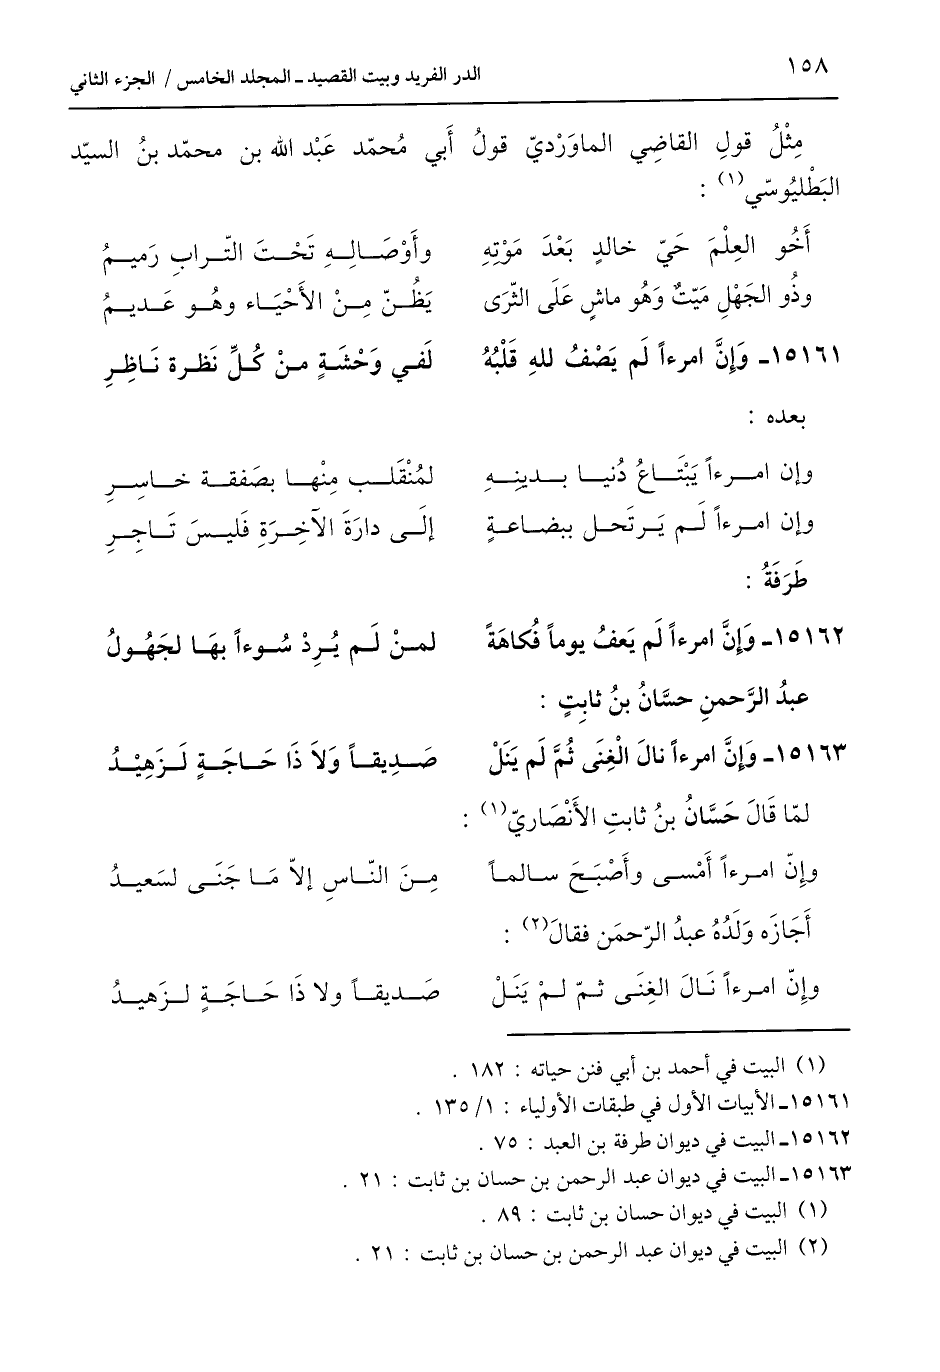 ١٥٨
الدر الفريد وبيت القصيد ـ المجلد الخامس / الجزء الثاني
مِثْلُ قولِ القاضِي الماوَرْديّ قولُ أَبي مُحمّد عَبْد الله بن محمّد بنُ السيّد
البَطْليُوسّي(١) :
أَخُو العِلْمَ حَيّ خالدٍ بَعْدَ مَوْتِهِ وأَوْصَالِهِ تَحْتَ التّرابِ رَميمُ
وذُو الجَهْلِ مَيّتٌ وَهُو ماشٍ عَلَى الثّرَى يَظُنّ مِنْ الأَحْيَاء وهُو عَديمُ
١٥١٦١ـ وَإِنَّ امرءاً لَم يَصْفُ للهِ قَلْبُهُ لَفي وَحْشَةٍ منْ كُلِّ نَظرة نَاظِرِ
بعده :
وإن امرءاً يَبْتَاعُ دُنيا بدينهِ لمُنْقَلب مِنْها بصَفقة خاسِرِ
وإن امرءاً لَم يَرتَحل ببضاعةٍ إلَى دارَةَ الآخِرَةِ فَليسَ تَاجِرِ
طَرَفَةُ :
١٥١٦٢ـ وَإِنَّ امرءاً لَم يَعفُ يوماً فُكاهَةً لمنْ لَم يُرِدْ سُوءاً بهَا لجَهُولُ
عبدُ الرَّحمنِ حسَّانُ بنُ ثابِتٍ :
١٥١٦٣ـ وَإِنَّ امرءاً نالَ الْغِنَى ثُمَّ لَم يَنَلْ صَدِيقاً وَلاَ ذَا حَاجَةٍ لَزَهِيْدُ
لمّا قَالَ حَسَّانُ بنُ ثابتِ الأَنْصَاريّ(١) :
وإنّ امرءاً أَمْسى وأَصْبَحَ سالماً مِنَ النّاسِ إلاّ مَا جَنَى لسَعيدُ
أَجَازَه وَلَدُهُ عبدُ الرّحمَن فقالَ(٢) :
وإنّ امرءاً نَالَ الغِنَى ثمّ لمْ يَنَلْ صَديقاً ولا ذَا حَاجَةٍ لزَهيدُ
(١) البيت في أحمد بن أبي فنن حياته : ١٨٢ .
١٥١٦١ـ الأبيات الأول في طبقات الأولياء : ١/ ١٣٥ .
١٥١٦٢ـ البيت في ديوان طرفة بن العبد : ٧٥ .
١٥١٦٣ـ البيت في ديوان عبد الرحمن بن حسان بن ثابت : ٢١ .
(١) البيت في ديوان حسان بن ثابت : ٨٩ .
(٢) البيت في ديوان عبد الرحمن بن حسان بن ثابت : ٢١ .